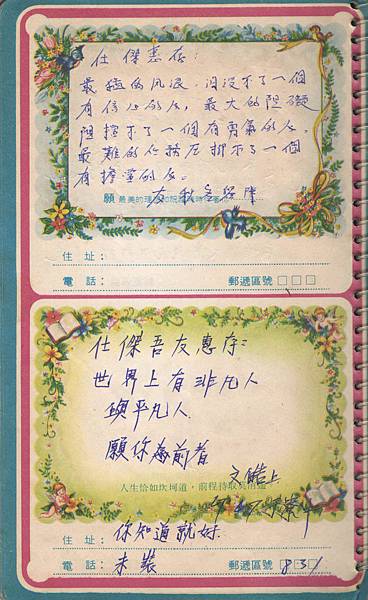 仕傑惠存：
最猛的风浪，淹没不了一個
有信心的人，最大的阻礙
阻擋不了一個有勇氣的人。
最難的任務压抑不了一個
有擔當的人。
友
願最美的
住址：
電話：
郵遞區號
仕傑吾友惠存：
世界上有非凡人
與平凡人
願你為前者
上
人生恰如坎坷道，前程持取
住址：你知道就好.
電話：未裝
郵遞區號 831